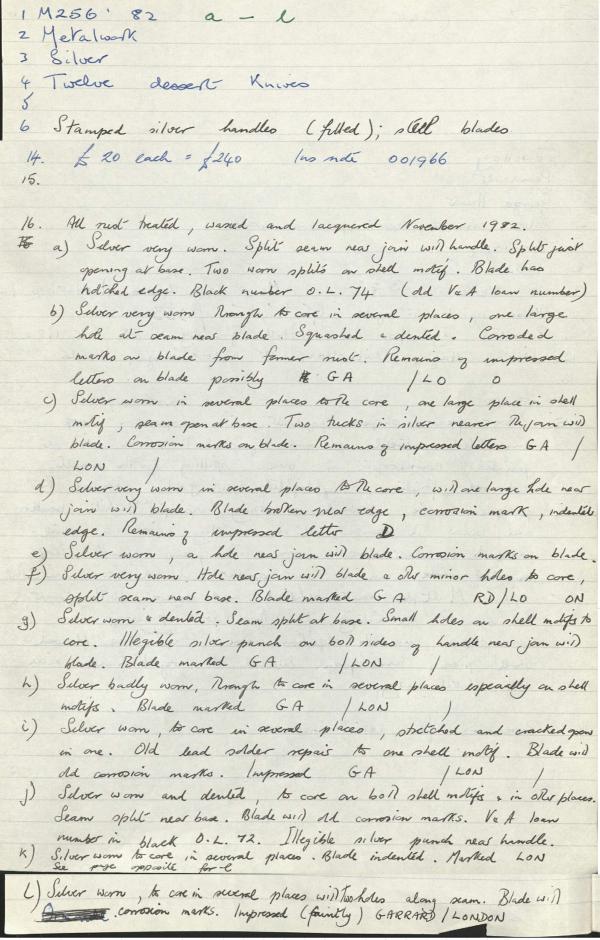 1 M256 ' 82 a - l
2 Metalwork
3 Silver
4 Twelve dessert Knives
5
6 Stamped silver handles (filled); steel blades
14. £ 20 each = £240 Ins note 001966
15.
16. All rust treated, waxed and lacquered November 1982.
a) Silver very worn. Split seam near join with handle. Splits just
opening at base. Two worn splits on shell motif. Blade has
hatched edge. Black number O.L. 74 (old V & A loan number)
b) Silver very worn through to core in several places, one large
hole at seam near blade. Squashed & dented. Corroded
marks on blade from former rust. Remains of impressed
letters on blade possibly GA / LO O
c) Silver worn in several places to the core, one large place in shell
motif, seam open at base. Two tucks in silver nearer the join with
blade. Corrosion marks on blade. Remains of impressed letters GA /
LON /
d) Silver very worn in several places to the core, with one large hole near
join with blade. Blade broken near edge, corrosion mark, indented
edge. Remains of impressed letter D
e) Silver worn, a hole near join with blade. Corrosion marks on blade.
f) Silver very worn. Hole near join with blade & other minor holes to core,
split seam near base. Blade marked G A RD / LO ON
g) Silver worn & dented. Seam split at base. Small holes on shell motifs to
core. Illegible silver punch on both sides of handle near join with
blade. Blade marked GA / LON /
h) Silver badly worn, through to core in several places especially on shell
motifs. Blade marked GA / LON )
i) Silver worn, to core in several places, stretched and cracked open
in one. Old lead solder repair to one shell motif. Blade with
old corrosion marks. Impressed GA / LON /
j) Silver worn and dented, to core on both shell motifs & in other places.
Seam split near base. Blade with old corrosion marks. V & A loan
number in black O.L. 72. Illegible silver punch near handle.
k) Silver worn to core in several places. Blade indented. Marked LON
See page opposite for l
L) Silver worn, to core in several places with two holes along seam. Blade with
corrosion marks. Impressed (faintly) GARRARD / LONDON